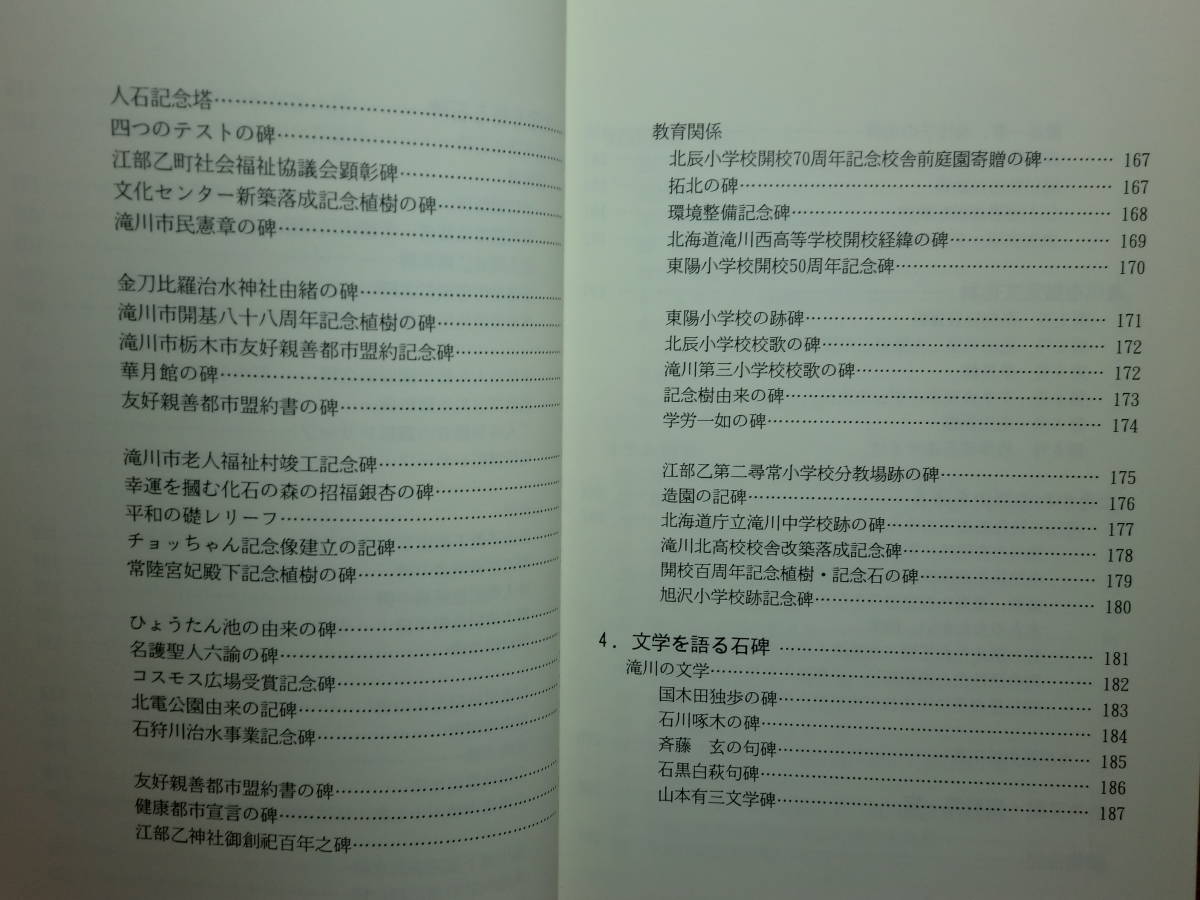 人石記念塔…………………………
四つのテストの碑…………………………
江部乙町社会福祉協議会顕彰碑…………………………
文化センター新築落成記念植樹の碑…………………………
滝川市民憲章の碑…………………………
金刀比羅治水神社由緒の碑…………………………
滝川市開基八十八周年記念植樹の碑…………………………
滝川市栃木市友好親善都市盟約記念碑…………………………
華月館の碑…………………………
友好親善都市盟約書の碑…………………………
滝川市老人福祉村竣工記念碑…………………………
幸運を摑む化石の森の招福銀杏の碑…………………………
平和の礎レリーフ…………………………
チョッちゃん記念像建立の記碑…………………………
常陸宮妃殿下記念植樹の碑…………………………
ひょうたん池の由来の碑…………………………
名護聖人六諭の碑…………………………
コスモス広場受賞記念碑…………………………
北電公園由来の記碑…………………………
石狩川治水事業記念碑…………………………
友好親善都市盟約書の碑…………………………
健康都市宣言の碑…………………………
江部乙神社御創祀百年之碑…………………………
教育関係
北辰小学校開校70周年記念校舎前庭園寄贈の碑………… 167
拓北の碑………………………… 167
環境整備記念碑………………………… 168
北海道滝川西高等学校開校経緯の碑………………………… 169
東陽小学校開校50周年記念碑………………………… 170
東陽小学校の跡碑………………………… 171
北辰小学校校歌の碑………………………… 172
滝川第三小学校校歌の碑………………………… 172
記念樹由来の碑………………………… 173
学労一如の碑………………………… 174
江部乙第二尋常小学校分教場跡の碑………………………… 175
造園の記碑………………………… 176
北海道庁立滝川中学校跡の碑………………………… 177
滝川北高校校舎改築落成記念碑………………………… 178
開校百周年記念植樹・記念石の碑………………………… 179
旭沢小学校跡記念碑………………………… 180
4．文学を語る石碑 ………………………… 181
滝川の文学………………………… 182
国木田独歩の碑………………………… 183
石川啄木の碑………………………… 184
斉藤　玄の句碑………………………… 185
石黒白萩句碑………………………… 186
山本有三文学碑………………………… 187